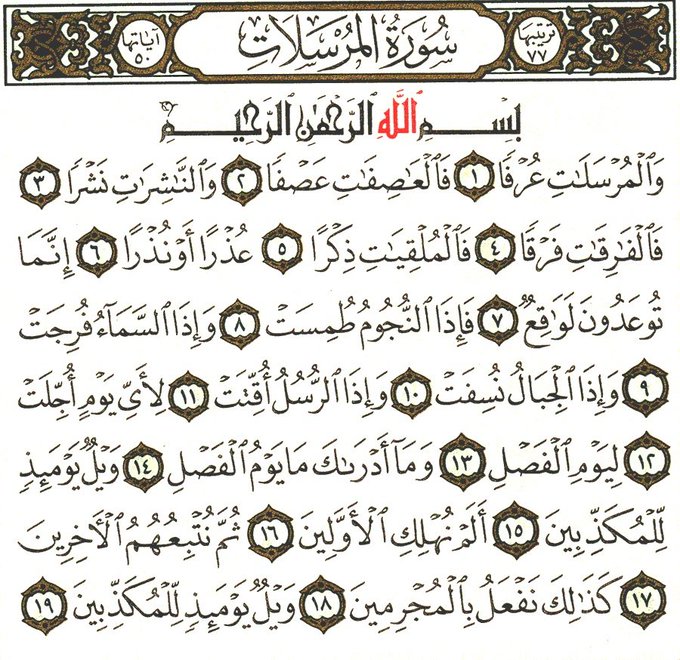 ترتيبها ٧٧ سُورَةُ المُرْسَلَاتِ آياتها ٥٠
بِسْمِ ٱللَّهِ ٱلرَّحْمَٰنِ ٱلرَّحِيمِ
وَٱلْمُرْسَلَٰتِ عُرْفًا ١ فَٱلْعَٰصِفَٰتِ عَصْفًا ٢ وَٱلنَّٰشِرَٰتِ نَشْرًا ٣
فَٱلْفَٰرِقَٰتِ فَرْقًا ٤ فَٱلْمُلْقِيَٰتِ ذِكْرًا ٥ عُذْرًا أَوْ نُذْرًا ٦ إِنَّمَا
تُوعَدُونَ لَوَٰقِعٌ ٧ فَإِذَا ٱلنُّجُومُ طُمِسَتْ ٨ وَإِذَا ٱلسَّمَآءُ فُرِجَتْ
٩ وَإِذَا ٱلْجِبَالُ نُسِفَتْ ١٠ وَإِذَا ٱلرُّسُلُ أُقِّتَتْ ١١ لِأَىِّ يَوْمٍ أُجِّلَتْ
١٢ لِيَوْمِ ٱلْفَصْلِ ١٣ وَمَآ أَدْرَىٰكَ مَا يَوْمُ ٱلْفَصْلِ ١٤ وَيْلٌ يَوْمَئِذٍ
لِّلْمُكَذِّبِينَ ١٥ أَلَمْ نُهْلِكِ ٱلْأَوَّلِينَ ١٦ ثُمَّ نُتْبِعُهُمُ ٱلْءَاخِرِينَ
١٧ كَذَٰلِكَ نَفْعَلُ بِٱلْمُجْرِمِينَ ١٨ وَيْلٌ يَوْمَئِذٍ لِّلْمُكَذِّبِينَ ١٩